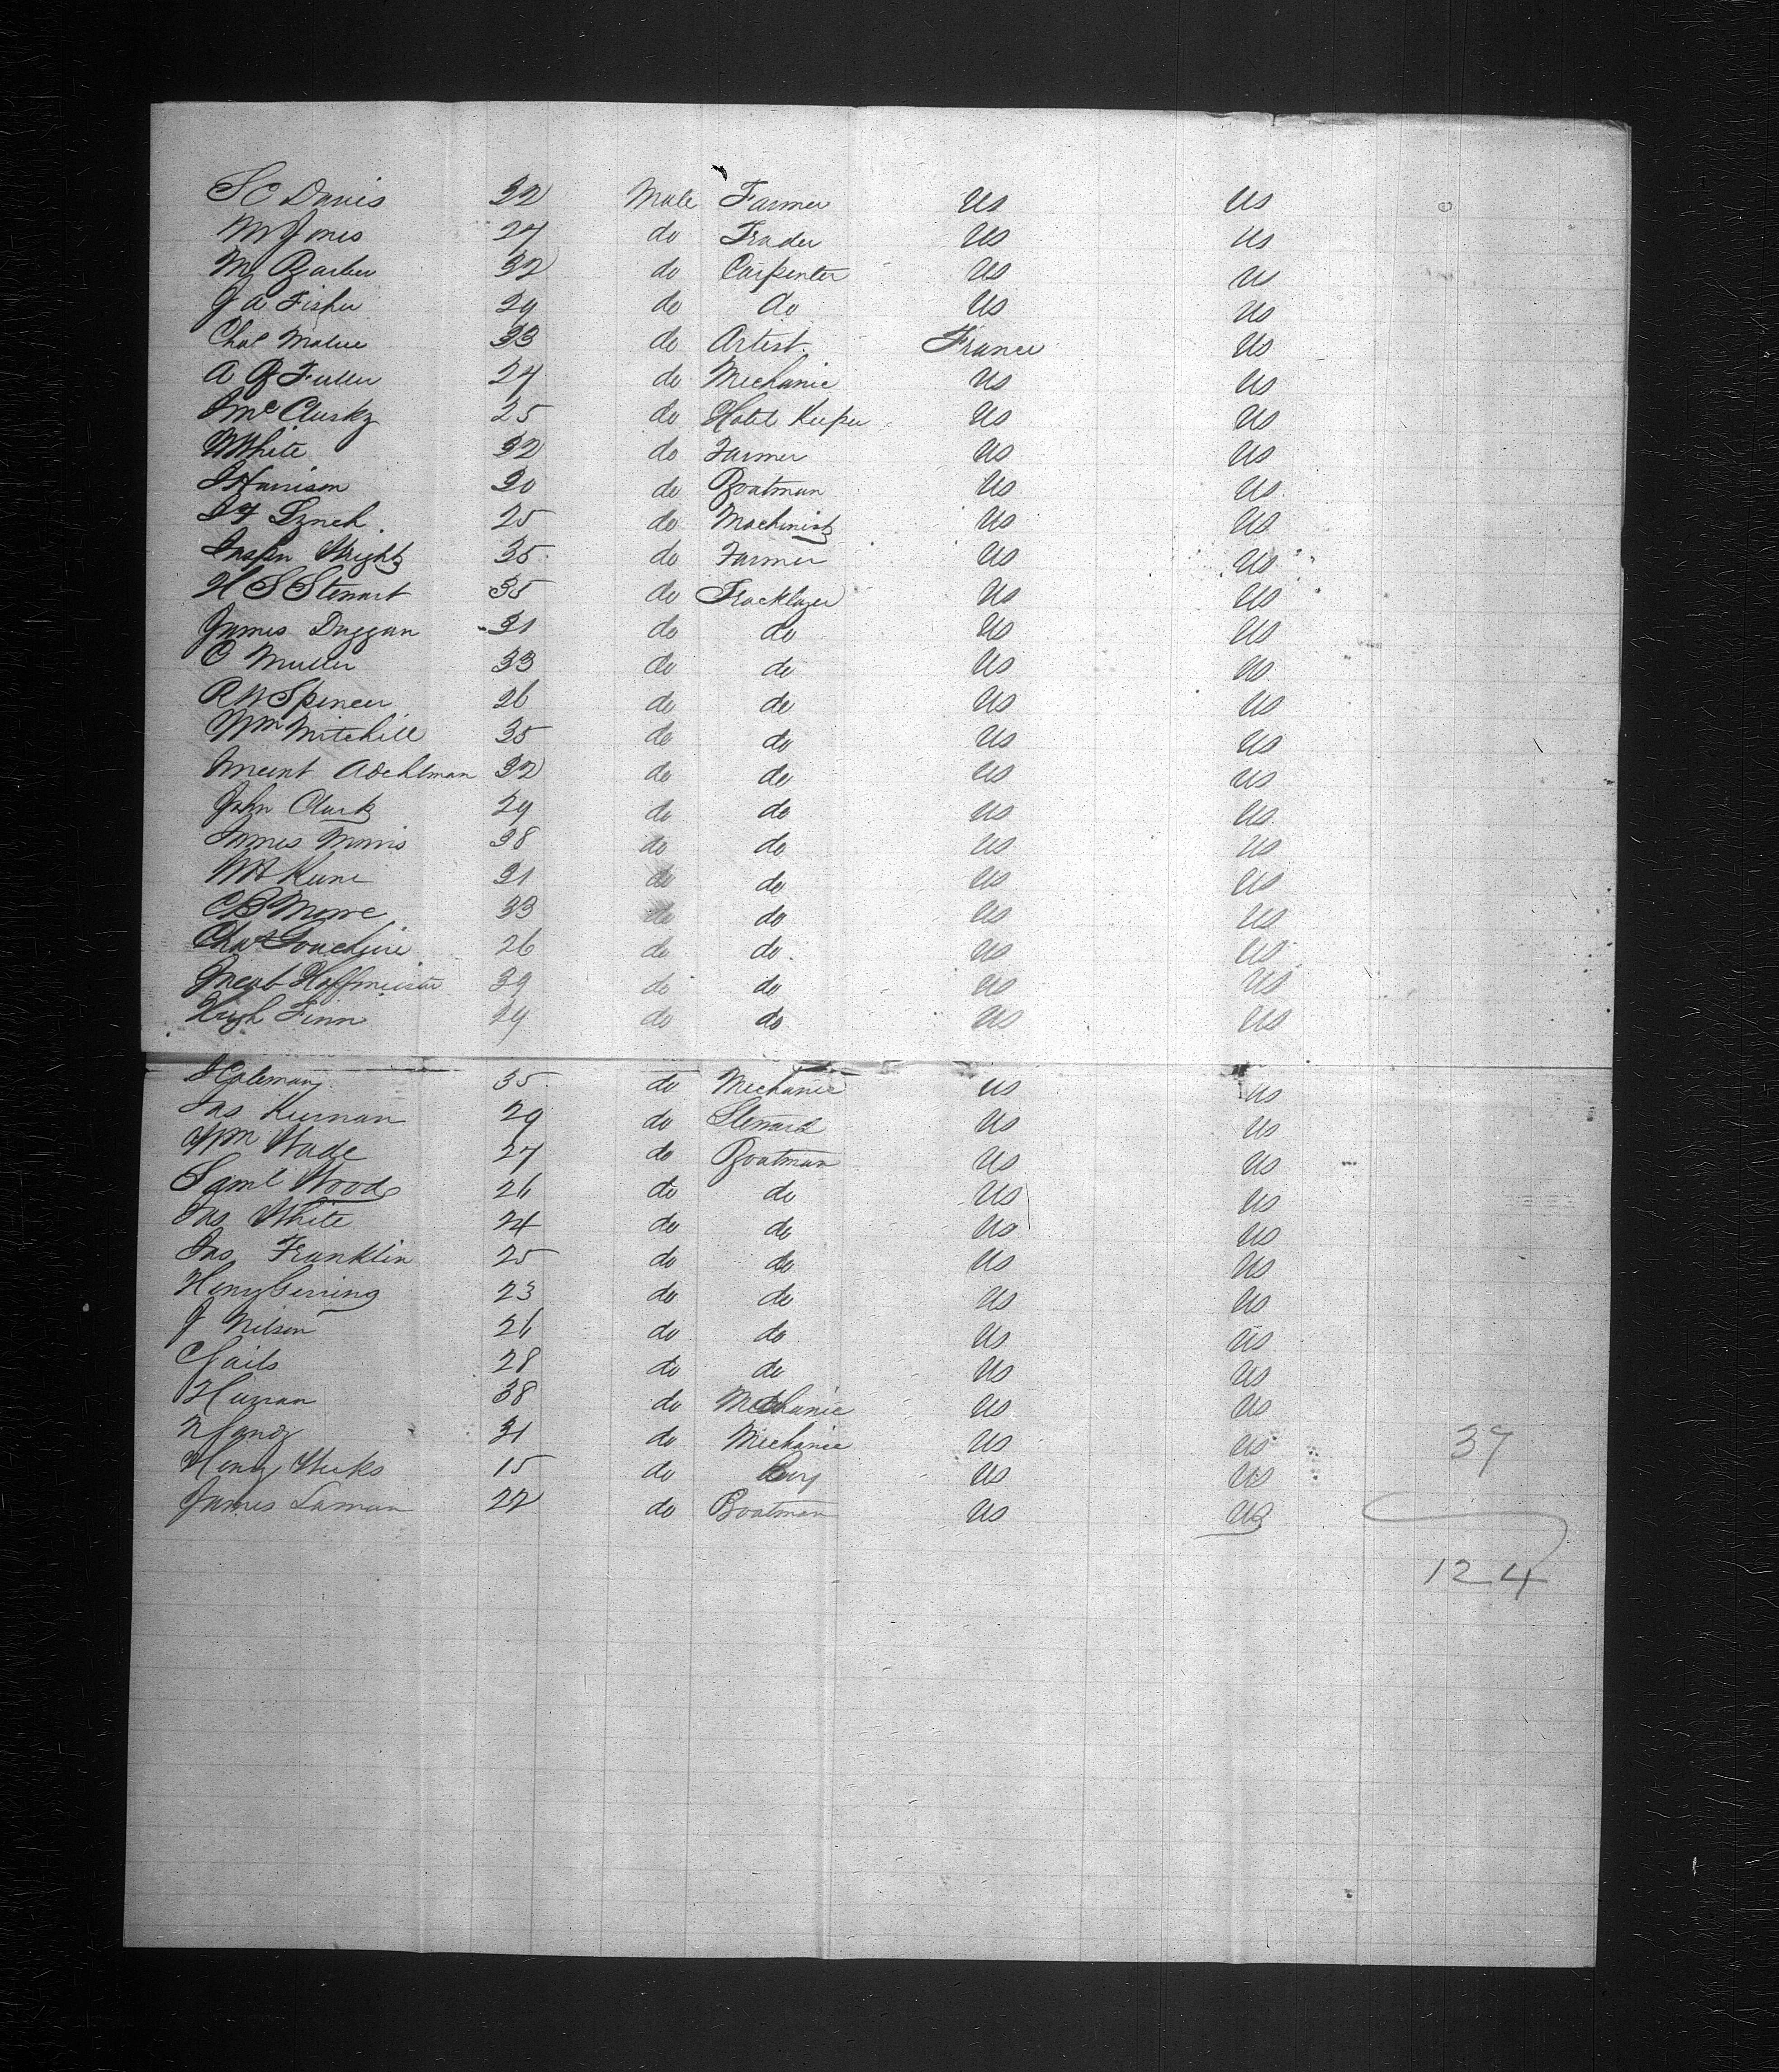 S C Davis 32 Male Farmer US US
M Jones 27 do Trader US US
M Barber 32 do Carpenter US US
J A Fisher 29 do do US US
Chas 33 do Artist. France US
A B Fuller 27 do Mechanic US US
J McClusky 25 do Hotel Keeper US US
W White 32 do Farmer US US
J Harrison 30 do Boatman US US
Lynch. 25 do Machinist US US
Wright 35 do Farmer US US
H S Stewart 35 do Tracklayer US US
James Duggan 31 do do US US
C Muller 33 do do US US
R W Spencer 26 do do US US
Wm Mitchill 35 do do US US
32 do do US US
John Clark 29 do do US US
James Morris 38 do do US US
W H Kune 31 do do US US
C B Moore 33 do do US US
Chas 26 do do. US US
Jacob Hoffmeister 39 do do US US
Hugh Finn 29 do do US US
Coleman 35 do Mechanic US US
Jas Kiernan 29 do Steward US US
Wm Wade 27 do Boatman US US
Saml Woods 26 do do US US
Jas White 24 do do US US
Jas Franklin 25 do do US US
Henry Gerring 23 do do US US
J Nilson 26 do do US US
28 do do US US
38 do Mechanic US US
31 do Mechanic US US
Henry Weeks 15 do Boy US US
James Laman 22 do Boatman US US
37
124